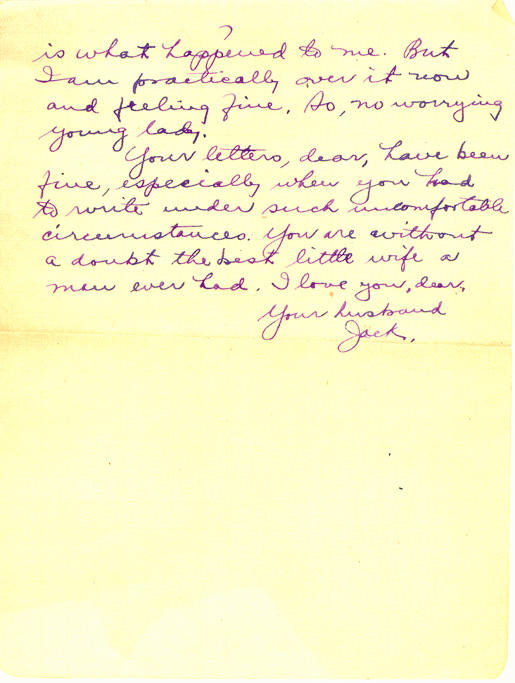 ?
is what happened to me. But
I am practically over it now
and feeling fine. So, no worrying
young lady.
Your letters, dear, have been
fine, especially when you had
to write under such uncomfortable
circumstances. You are without
a doubt the best little wife a
man ever had. I love you, dear,
Your husband
Jack.